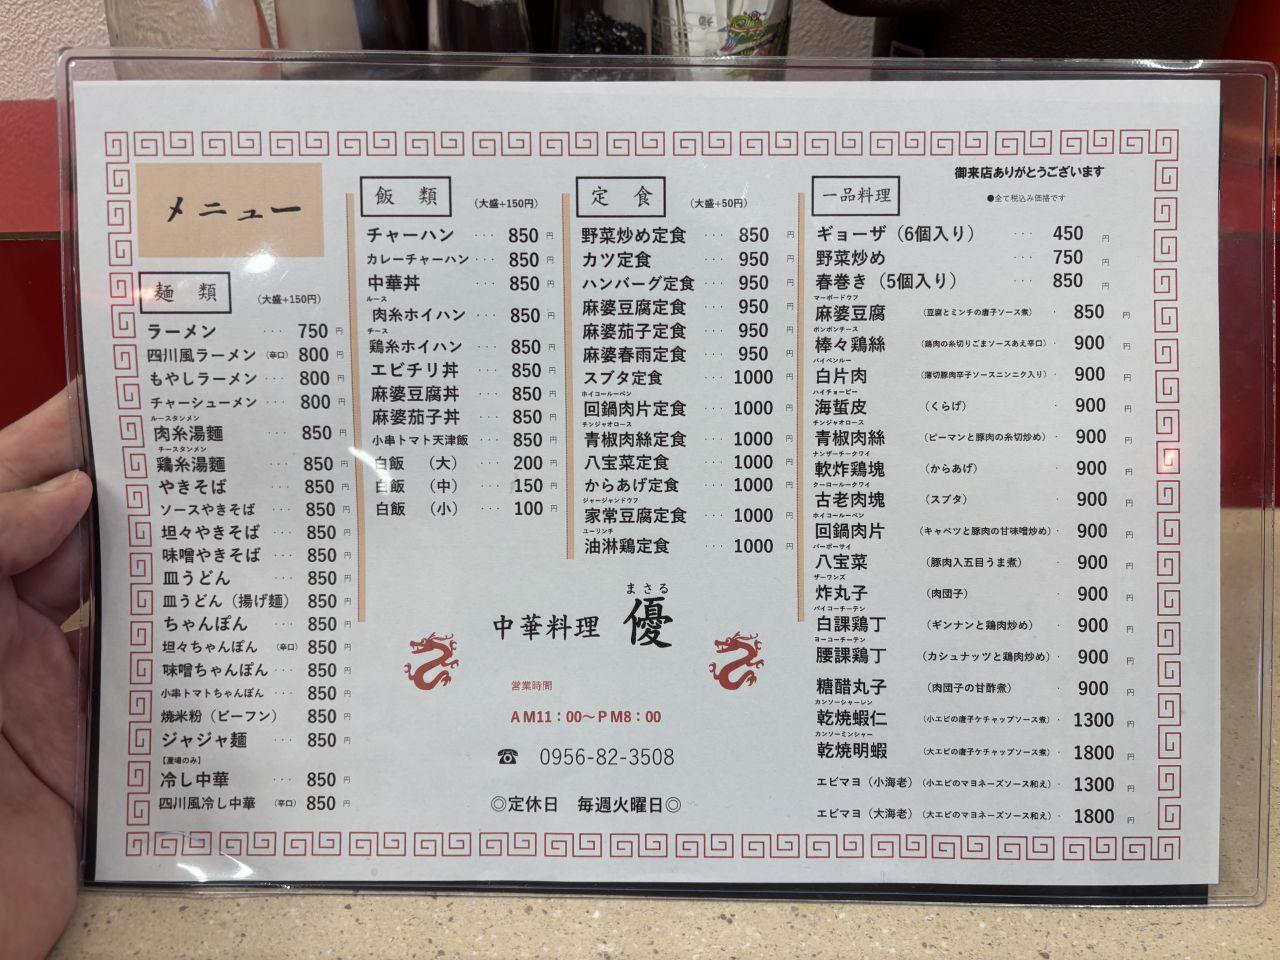 メニュー
麺類 （大盛+150円）
ラーメン ··· 750円
四川風ラーメン（辛口） 800円
もやしラーメン ··· 800円
チャーシューメン ··· 800円
ルースータンメン
肉糸湯麺 ··· 850円
チースータンメン
鶏糸湯麺 ··· 850円
やきそば ··· 850円
ソースやきそば ··· 850円
坦々やきそば ··· 850円
味噌やきそば ··· 850円
皿うどん ··· 850円
皿うどん（揚げ麺） 850円
ちゃんぽん ··· 850円
坦々ちゃんぽん（辛口） 850円
味噌ちゃんぽん ··· 850円
小串トマトちゃんぽん ··· 850円
焼米粉（ビーフン） 850円
ジャジャ麺 ··· 850円
【夏場のみ】
冷し中華 ··· 850円
四川風冷し中華（辛口） 850円
飯類 （大盛+150円）
チャーハン ··· 850円
カレーチャーハン ··· 850円
中華丼 ··· 850円
ルース
肉糸ホイハン ··· 850円
チース
鶏糸ホイハン ··· 850円
エビチリ丼 ··· 850円
麻婆豆腐丼 ··· 850円
麻婆茄子丼 ··· 850円
小串トマト天津飯 ··· 850円
白飯 （大） ··· 200円
白飯 （中） ··· 150円
白飯 （小） ··· 100円
定食 （大盛+50円）
野菜炒め定食 ··· 850円
カツ定食 ··· 950円
ハンバーグ定食 ··· 950円
麻婆豆腐定食 ··· 950円
麻婆茄子定食 ··· 950円
麻婆春雨定食 ··· 950円
スブタ定食 ··· 1000円
ホイコールーペン
回鍋肉片定食 ··· 1000円
チンジャオロース
青椒肉絲定食 ··· 1000円
八宝菜定食 ··· 1000円
からあげ定食 ··· 1000円
ジャージャンドウフ
家常豆腐定食 ··· 1000円
ユーリンチ
油淋鶏定食 ··· 1000円
御来店ありがとうございます
一品料理 ●全て税込み価格です
ギョーザ（6個入り） ··· 450円
野菜炒め ··· 750円
春巻き（5個入り） ··· 850円
マーボードウフ
麻婆豆腐 （豆腐とミンチの唐子ソース煮） · 850円
ボンボンチース
棒々鶏絲 （鶏肉の糸切りごまソースあえ辛口） · 900円
パイペンルー
白片肉 （薄切豚肉辛子ソースニンニク入り） · 900円
ハイチョーピー
海蜇皮 （くらげ） · 900円
チンジャオロース
青椒肉絲 （ピーマンと豚肉の糸切炒め） · 900円
ナンザーチークワイ
軟炸鶏塊 （からあげ） · 900円
クーロールークワイ
古老肉塊 （スブタ） · 900円
ホイコールーペン
回鍋肉片 （キャベツと豚肉の甘味噌炒め） · 900円
パーボーサイ
八宝菜 （豚肉入五目うま煮） · 900円
ザーワンズ
炸丸子 （肉団子） · 900円
パイコーチーテン
白課鶏丁 （ギンナンと鶏肉炒め） · 900円
ヨーコーチーテン
腰課鶏丁 （カシュナッツと鶏肉炒め） · 900円
糖醋丸子 （肉団子の甘酢煮） · 900円
カンソーシャーレン
乾焼蝦仁 （小エビの唐子ケチャップソース煮） · 1300円
カンソーミンシャー
乾焼明蝦 （大エビの唐子ケチャップソース煮） · 1800円
エビマヨ（小海老）（小エビのマヨネーズソース和え） · 1300円
エビマヨ（大海老）（大エビのマヨネーズソース和え） · 1800円
まさる
中華料理 優
営業時間
AM11：00〜PM8：00
☎ 0956-82-3508
◎定休日 毎週火曜日◎